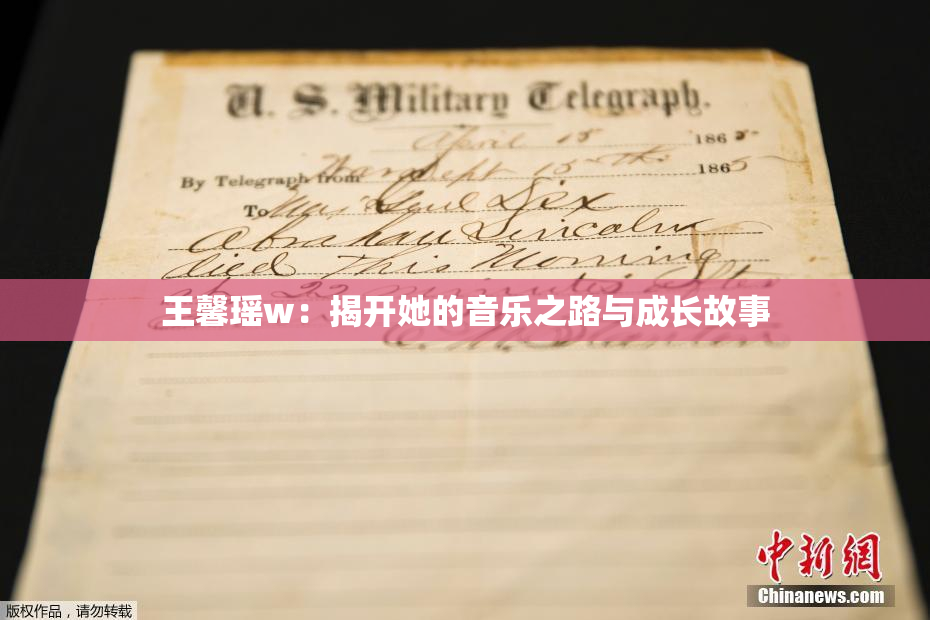 U. S. Military Telegraph.
April 15 1865
By Telegraph from War Dept 15th 1865
To Maj Genl Dix
Abraham Lincoln
died This Morning
at 22 minutes after
王馨瑶w：揭开她的音乐之路与成长故事
E. M. Stanton
中新网
Chinanews.com
版权作品，请勿转载